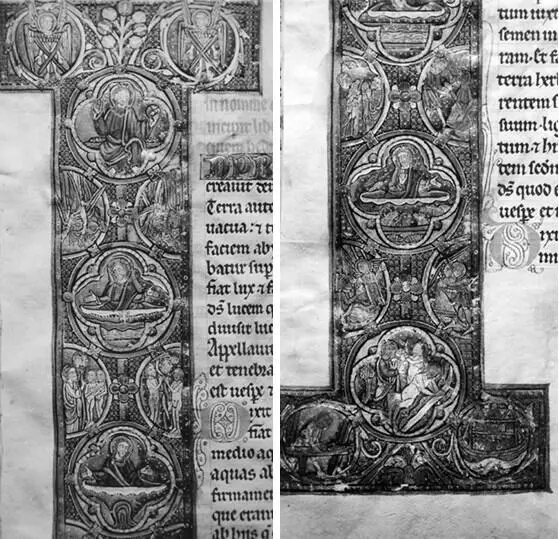 in nomine
incipit lib
creauit deu
Terra aute
uacua: ⁊ t
faciem aby
batur sup
fiat lux ⁊ f
dś lucem q
diuisit luc
Appellauit
et tenebra
est uespe ⁊
Dixit
fiat
medio aq
aquas ab
firmamen
que erant
ab hiis q
tium iuxt
semen in
ram. Et fa
terra herb
rentem s
suum. lig
tum. ⁊ h
tem secd
dś quod e
uespe et
Dixit
mi